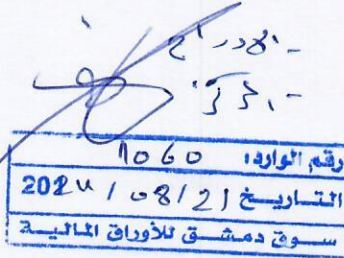 - الادراج
رقم الوارد: 1060
التاريخ 2024 / 08 / 21
سوق دمشق للأوراق المالية